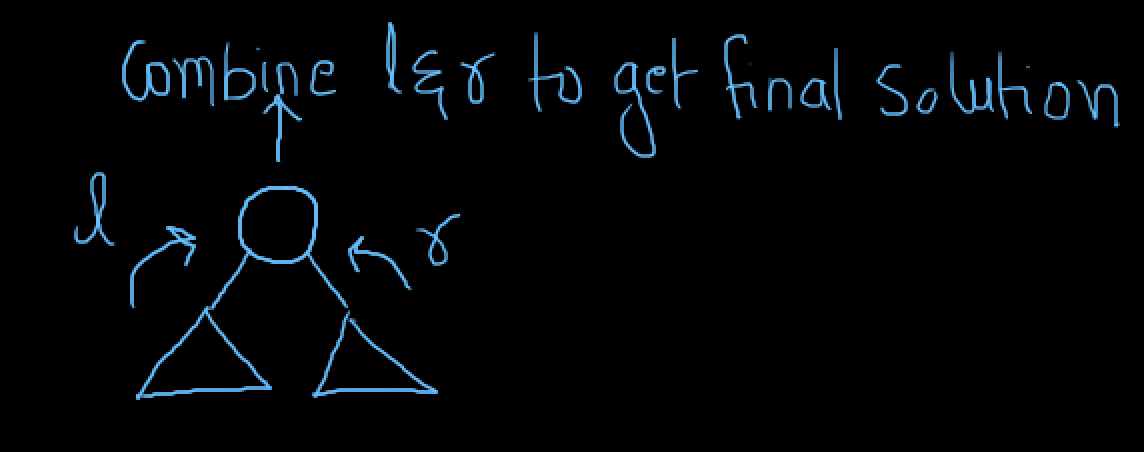 Combine l & r to get final solution
l
r